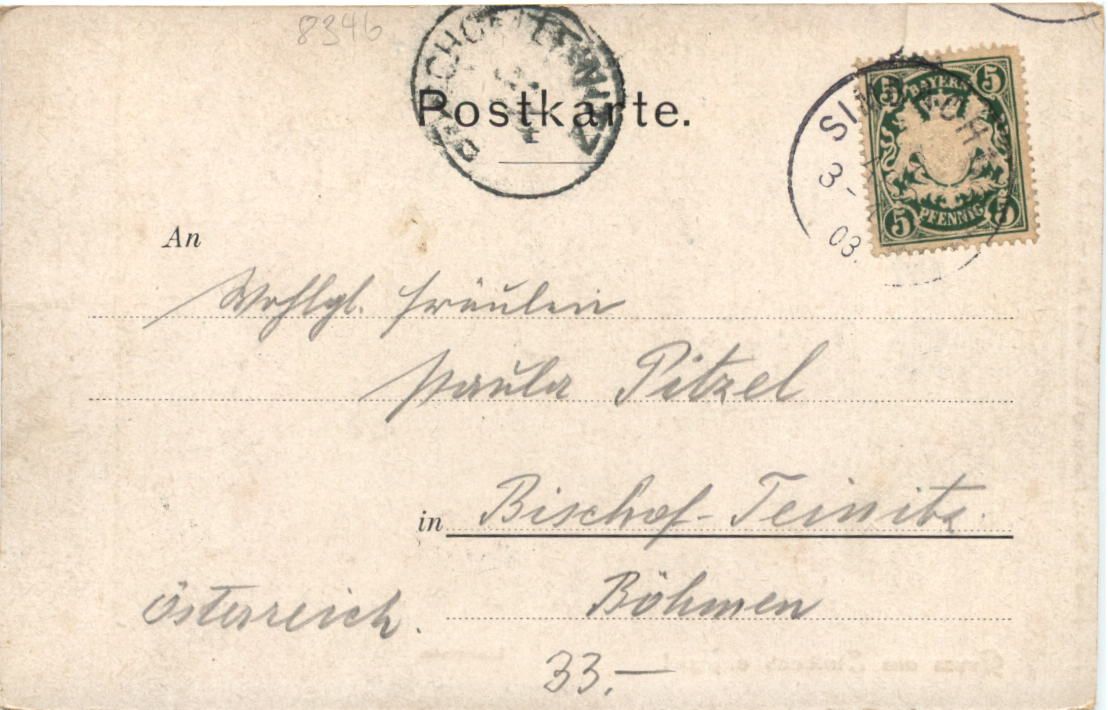 8346
Postkarte.
5 5
BAYERN
PFENNIG
5
3
03.
An
Wohlgb. Fräulein
Paula Pitzel
in Bischof-Teinitz.
Österreich. Böhmen
33.-